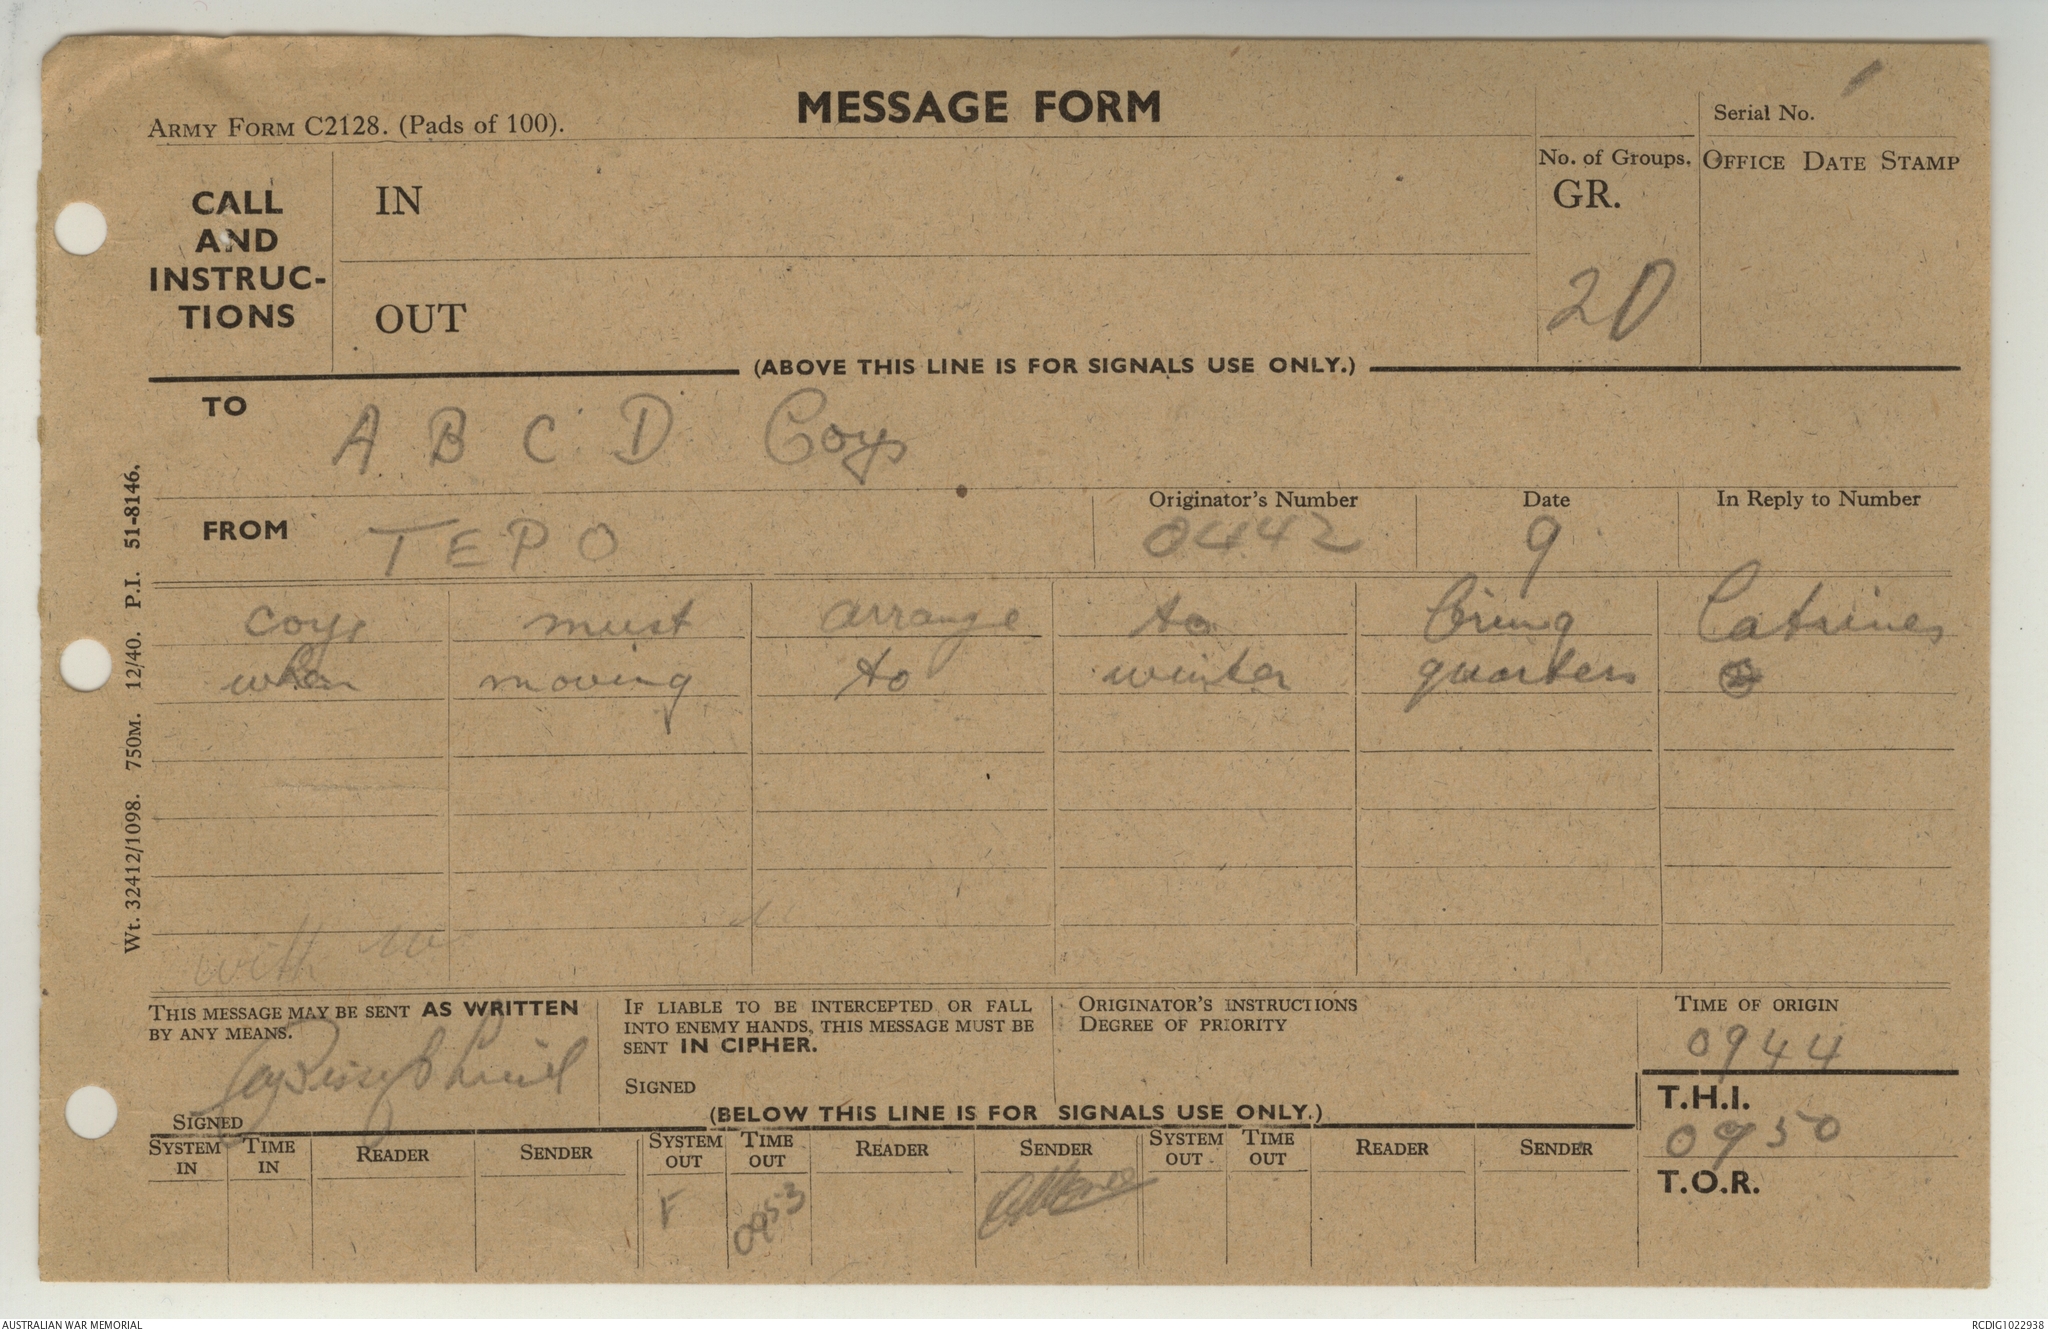 MESSAGE FORM
ARMY FORM C2128. (Pads of 100).
Serial No. 1
CALL AND INSTRUC-TIONS
IN
OUT
No. of Groups.
GR.
20
OFFICE DATE STAMP
(ABOVE THIS LINE IS FOR SIGNALS USE ONLY.)
TO
A B C D Coys
FROM
TEPO
Originator's Number
0442
Date
9
In Reply to Number
coys must arrange to bring Latrines
when moving to winter quarters
with
Wt. 32412/1098. 750M. 12/40. P.I. 51-8146.
THIS MESSAGE MAY BE SENT AS WRITTEN
BY ANY MEANS.
SIGNED
IF LIABLE TO BE INTERCEPTED OR FALL
INTO ENEMY HANDS, THIS MESSAGE MUST BE
SENT IN CIPHER.
SIGNED
ORIGINATOR'S INSTRUCTIONS
DEGREE OF PRIORITY
TIME OF ORIGIN
0944
T.H.I.
0950
T.O.R.
(BELOW THIS LINE IS FOR SIGNALS USE ONLY.)
SYSTEM IN TIME IN READER SENDER SYSTEM OUT TIME OUT READER SENDER SYSTEM OUT TIME OUT READER SENDER
F 0953
AUSTRALIAN WAR MEMORIAL
RCDIG1022938